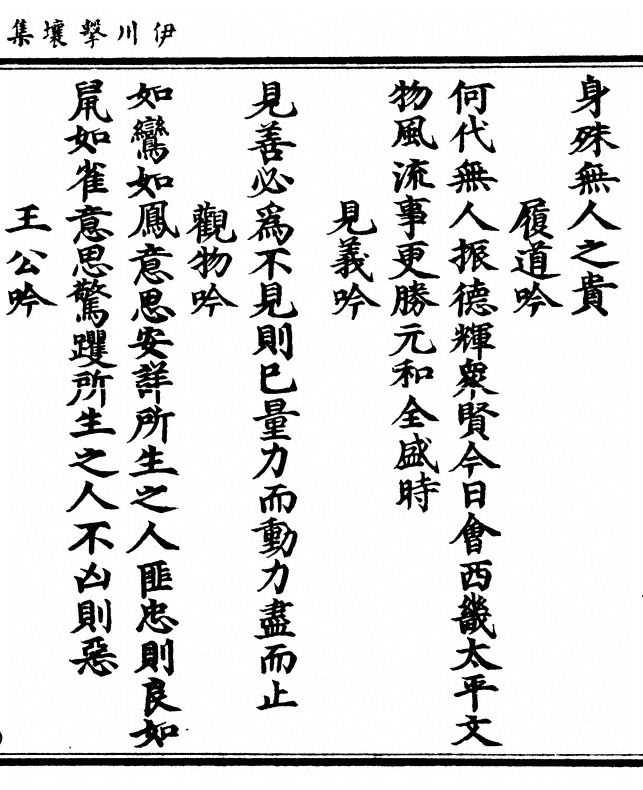 伊川擊壤集
身殊無人之貴
履道吟
何代無人振德輝衆賢今日會西畿太平文
物風流事更勝元和全盛時
見義吟
見善必爲不見則已量力而動力盡而止
觀物吟
如鸞如鳳意思安詳所生之人匪忠則良如
鼠如雀意思驚躩所生之人不凶則惡
王公吟